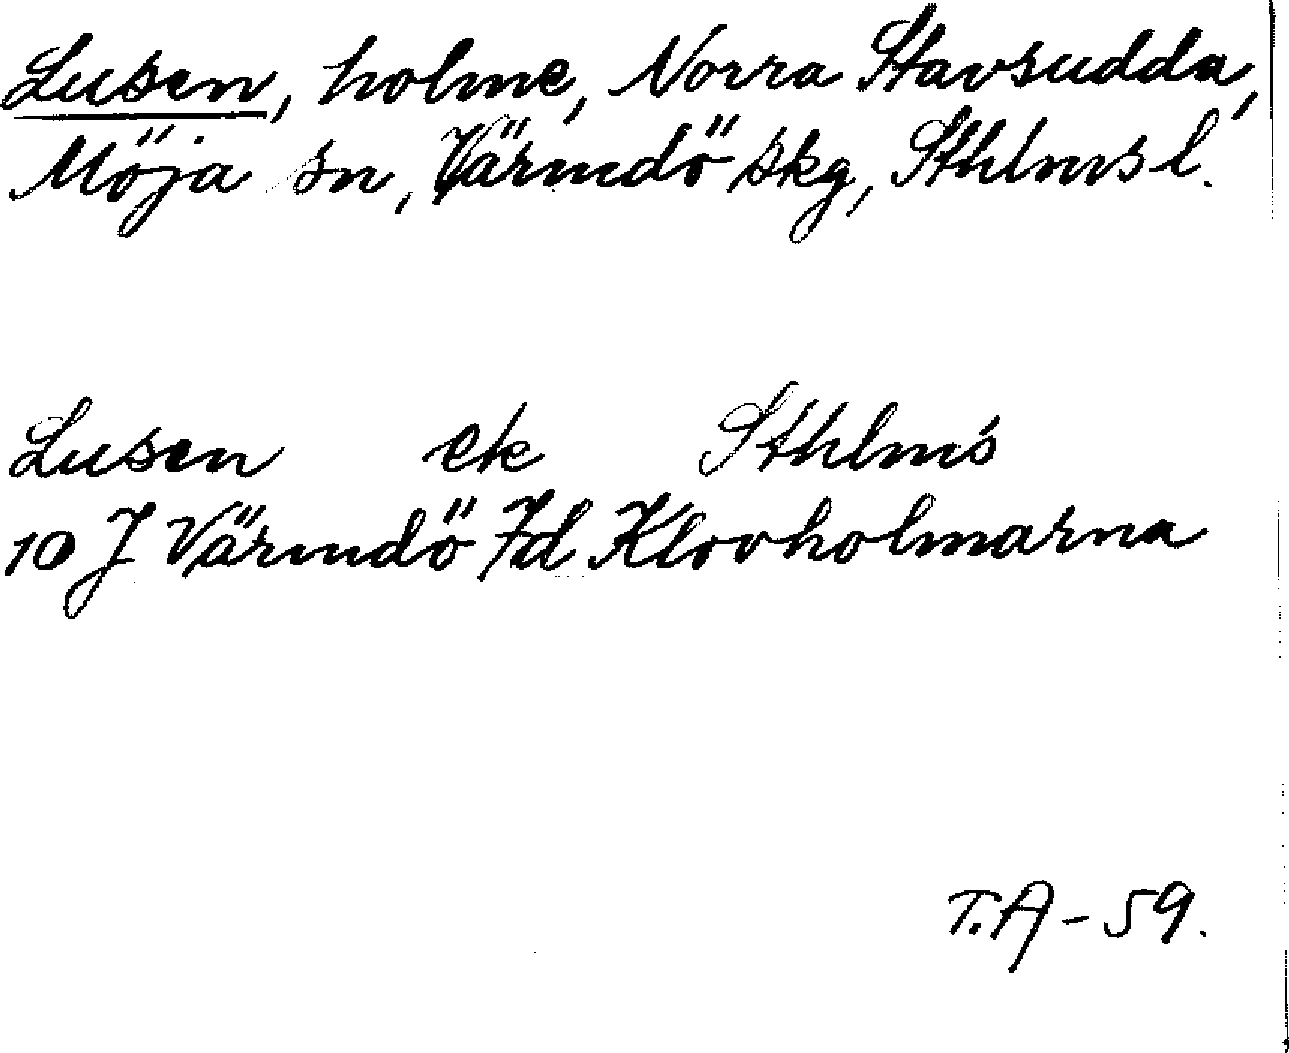 Lusen, holme, Norra Stavsudda,
Möja sn, Värmdö skg, Sthlms l.
Lusen ek Sthlms
10 J Värmdö 7d Klovholmarna
T.A-59.